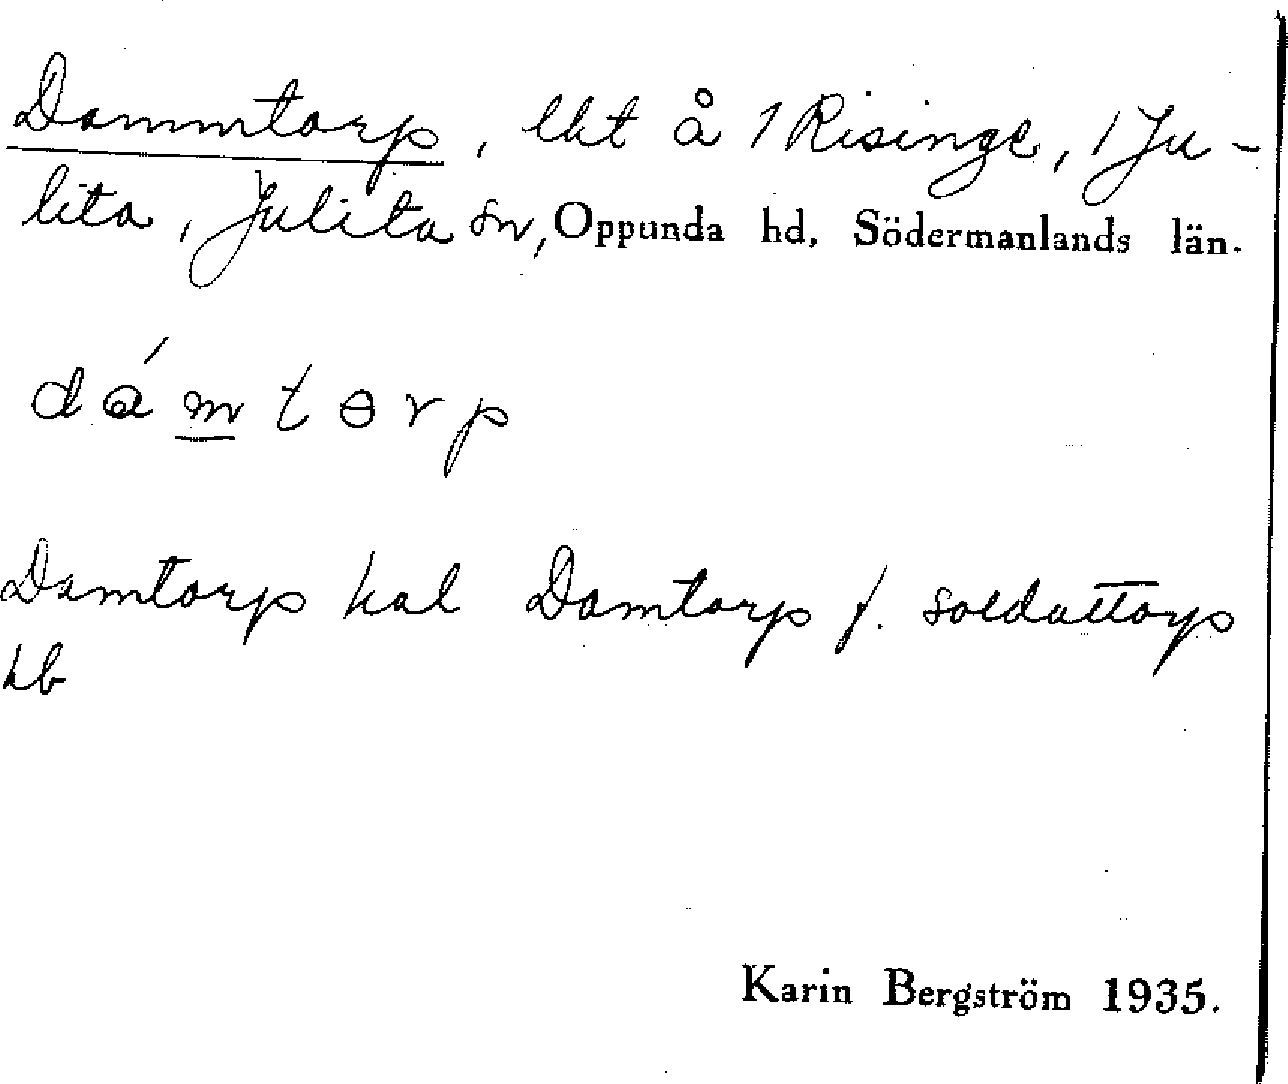 Dammtorp, lht å 1 Risinge, 1 Ju-
lita, Julita sn, Oppunda hd, Södermanlands län.
dám̲tɵrp
Damtorp hal Damtorp f. soldattorp
hb
Karin Bergström 1935.